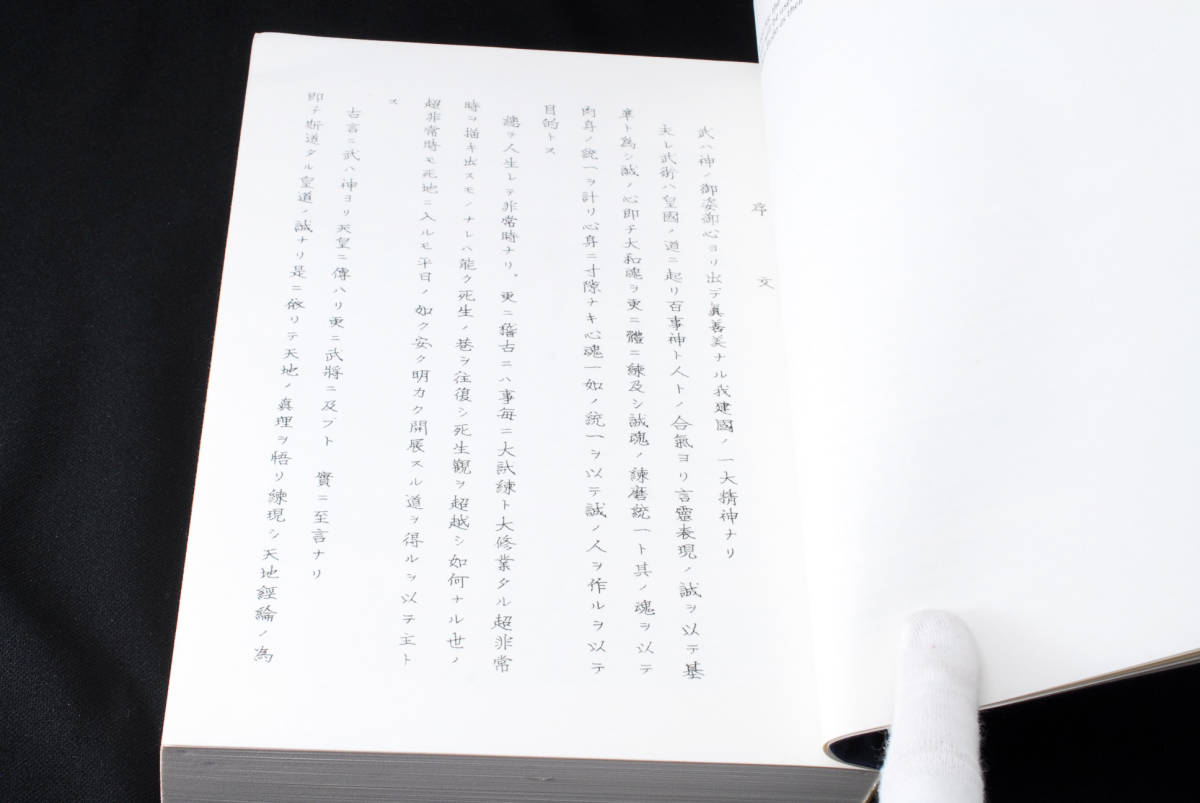 序文
武ハ神ノ御姿御心ヨリ出デ眞善美ナル我建國ノ一大精神ナリ
夫レ武術ハ皇國ノ道ニ起リ百事神ト人トノ合氣ヨリ言靈表現ノ誠ヲ以テ基
準ト為シ誠ノ心即チ大和魂ヲ更ニ體ニ練及シ誠魂ノ練磨統一ト其ノ魂ヲ以テ
肉身ノ統一ヲ計リ心身ニ寸隙ナキ心魂一如ノ統一ヲ以テ誠ノ人ヲ作ルヲ以テ
目的トス
總ヲ人生レテ非常時ナリ。更ニ稽古ニハ事每ニ大試練ト大修業タル超非常
時ヲ描キ出スモノナレハ能ク死生ノ巷ヲ往復シ死生觀ヲ超越シ如何ナル世ノ
超非常時モ死地ニ入ルモ平日ノ如ク安ク明カク開展スル道ヲ得ルヲ以テ主ト
ス
古言ニ武ハ神ヨリ天皇ニ傳ハリ更ニ武將ニ及ブト 實ニ至言ナリ
即チ斯道タル皇道ノ誠ナリ是ニ依リテ天地ノ真理ヲ悟リ練現シ天地經綸ノ為